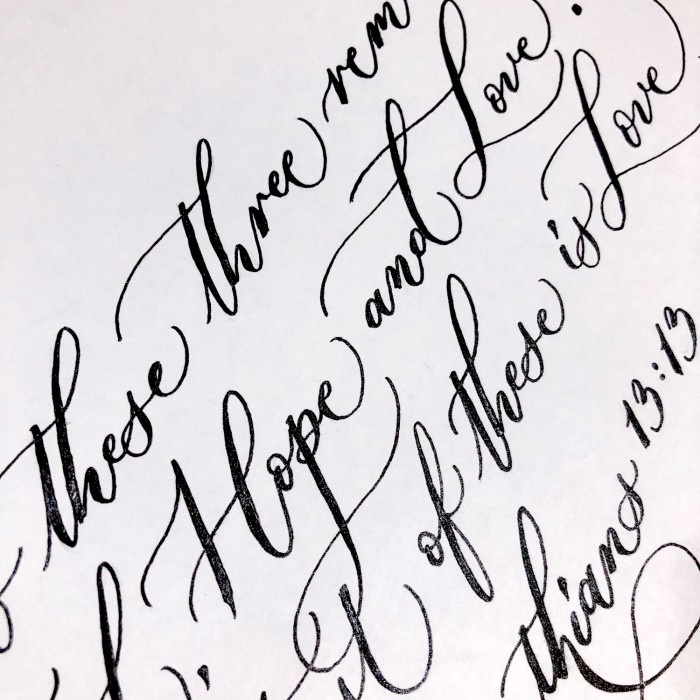 these three rem
Hope and Love.
of these is Love
thians 13:13